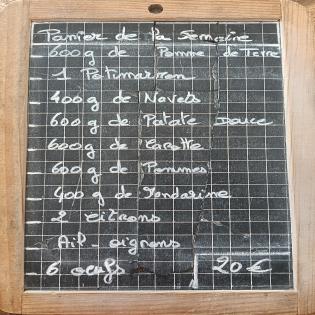 Panier de la Semaine
600g de Pomme de Terre
1 Potimarron
400g de Navets
600g de Patate Douce
600g de Carotte
600g de Pommes
400g de Mandarine
2 citrons
Ail - oignons
6 oeufs 20€